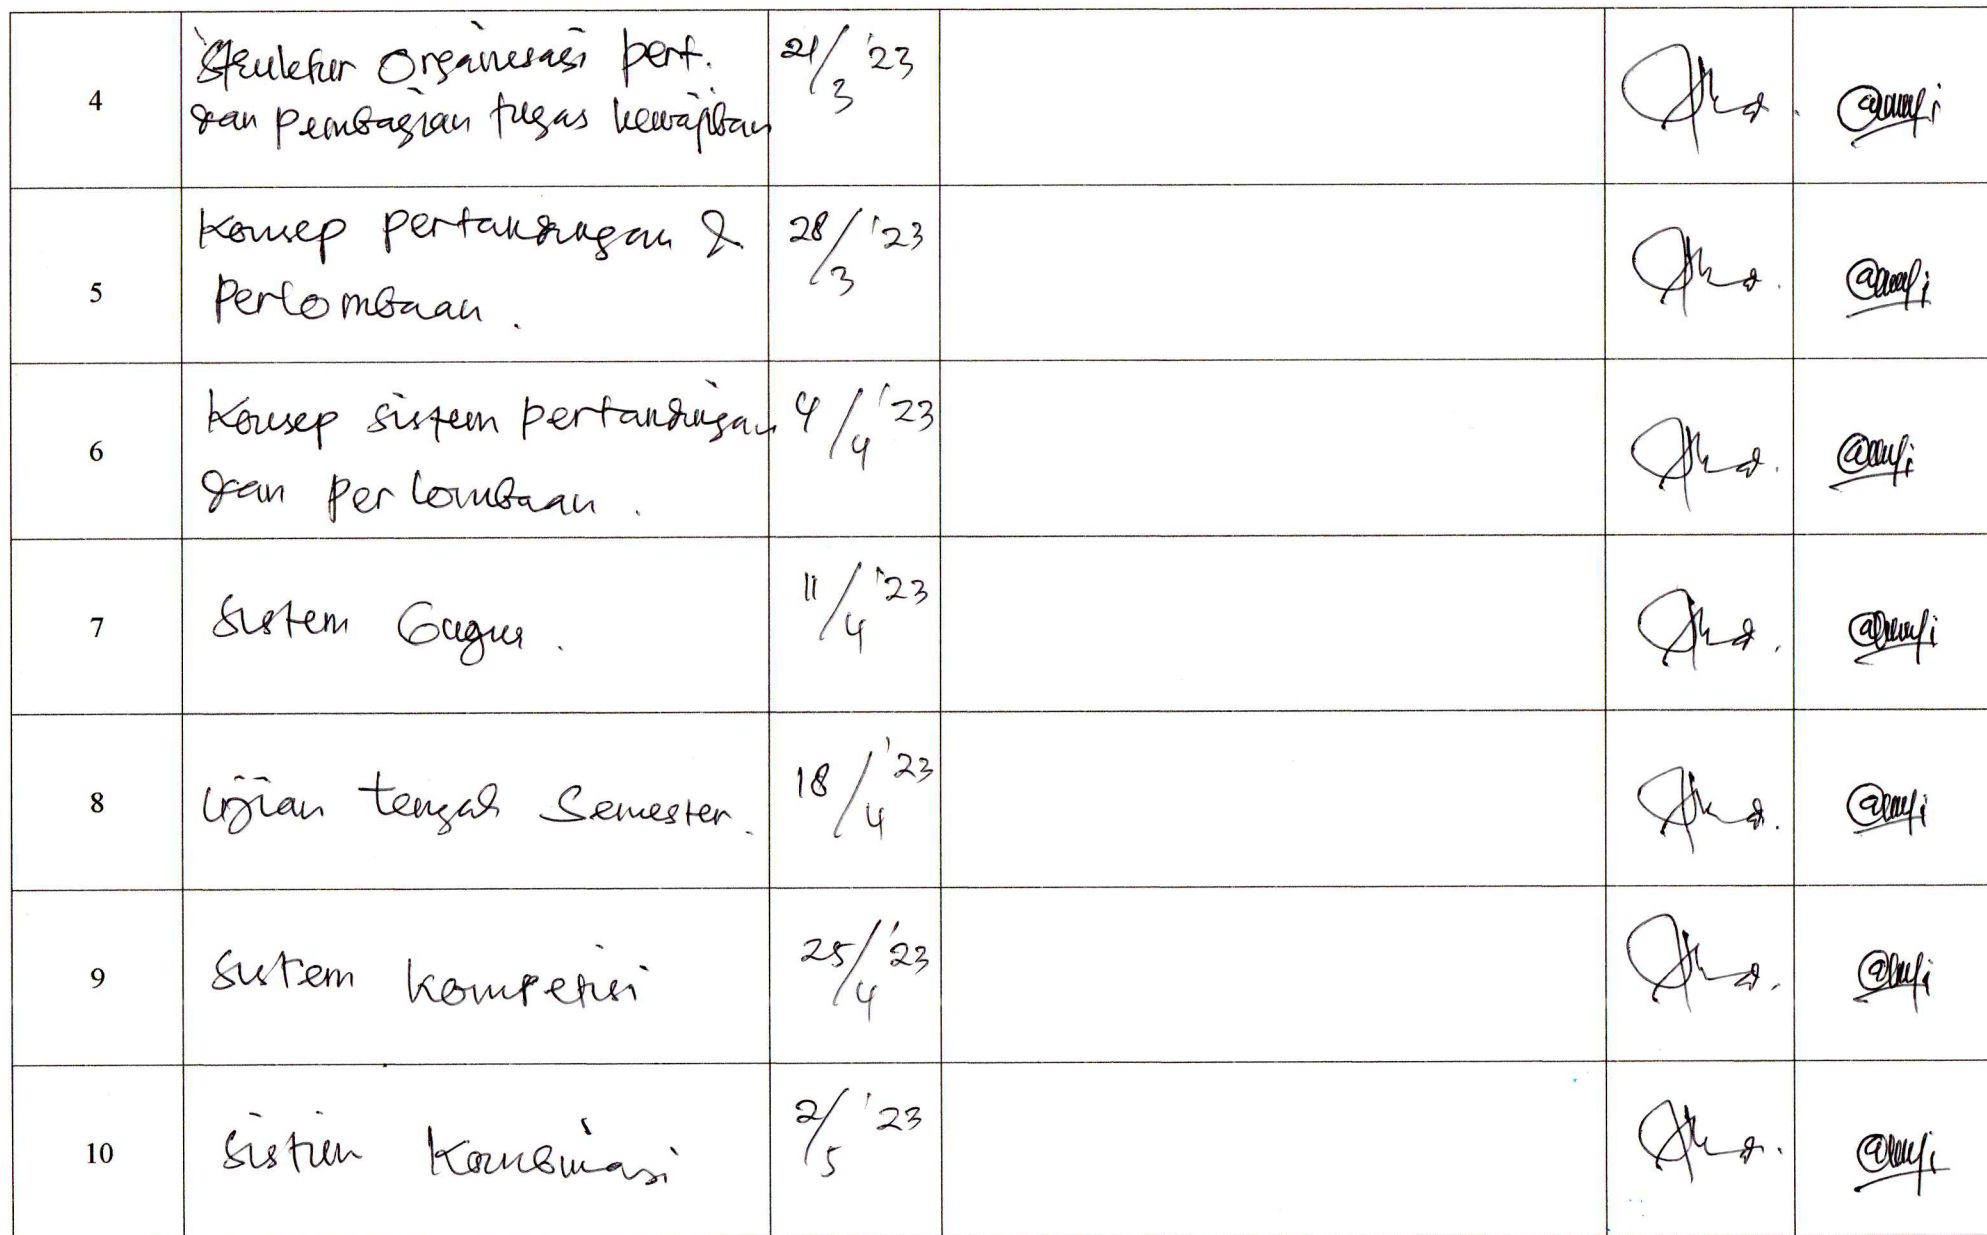 4
Struktur Organisasi pert.
dan pembagian tugas kewajiban
21/3 '23
5
Konsep pertandingan &
Perlombaan.
28/3 '23
6
Konsep sistem pertandingan
dan perlombaan.
4/4 '23
7
Sistem Gugur.
11/4 '23
8
Ujian tengah Semester.
18/4 '23
9
Sistem kompetisi
25/4 '23
10
Sistim Kombinasi
2/5 '23